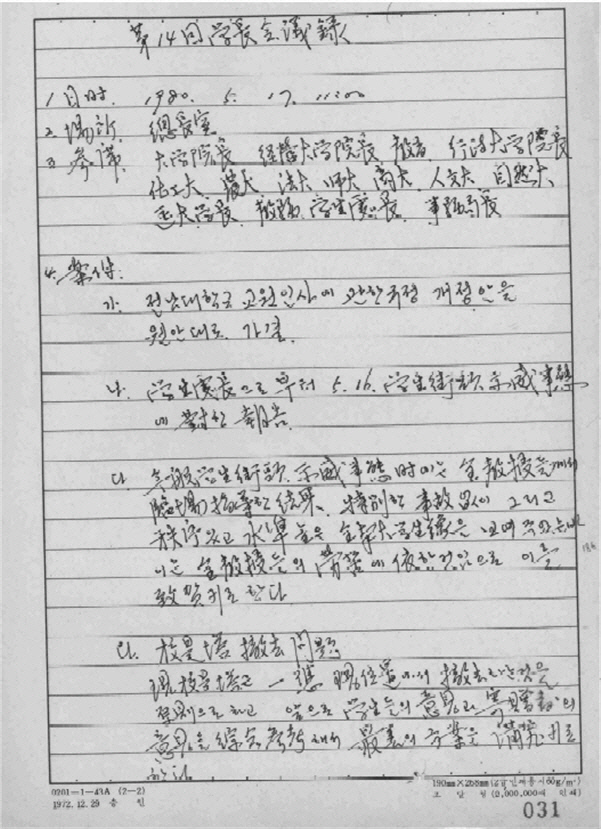 第14回学長会議録
1. 日時. 1980. 5. 17. 11:00
2. 場所 總長室
3. 參席 大学院長 経営大学院長 行政大学院長
農大 法大 師大 商大 人文大 自然大
学長 敎務 学生處長 事務局長
4. 案件.
가. 전남대학교 교원인사에 관한 규정 개정안을
원안대로 가결.
나. 学生處長으로부터 5. 16. 学生街頭示威事態
에 對한 報告.
다. 今般 学生街頭 示威事態時에는 全敎授들께서
臨場 指導한 結果, 特別한 事故없이 그리고
秩序있고 水準높은 全南大学生像을 보여 주었는데
이는 全敎授들의 勞苦에 依한 것임으로 이를
致賀키로 하다.
라. 校是塔 撤去 問題
現 校是塔은 一應 現位置에서 撤去하는 것을
原則으로 하고 앞으로 学生들의 意見과 의
意見을 綜合参考해서 最善의 方案을 講究키로
하다
0201-1-43A (2-2)
1972. 12. 29 승인
190mm×268mm(2급인쇄용지60g/m²)
조달청(2,000,000매 인쇄)
031